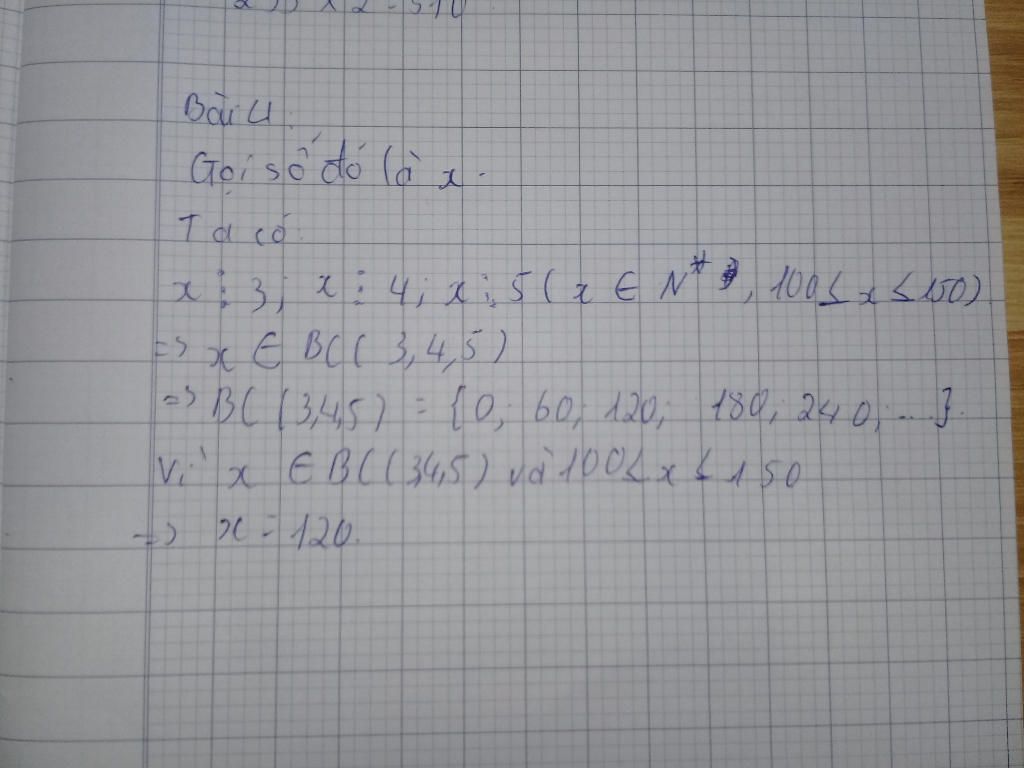 Bài 4.
Gọi số đó là x.
Ta có:
x ⋮ 3; x ⋮ 4; x ⋮ 5 ( x ∈ N*, 100 ≤ x ≤ 150)
=> x ∈ BC( 3,4,5)
=> BC (3,4,5) = {0; 60; 120; 180; 240; ...}.
Vì x ∈ BC(3,4,5) và 100 ≤ x ≤ 150
=> x = 120.